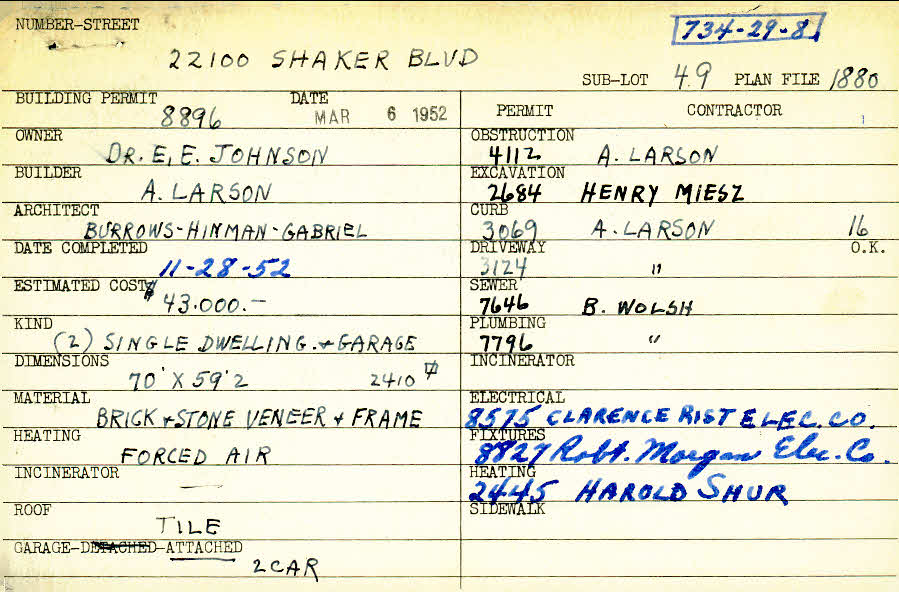 NUMBER-STREET
734-29-8
22100 SHAKER BLVD
SUB-LOT 49 PLAN FILE 1880
BUILDING PERMIT DATE
8896 MAR 6 1952
OWNER
DR. E. E. JOHNSON
BUILDER
A. LARSON
ARCHITECT
BURROWS-HINMAN-GABRIEL
DATE COMPLETED
11-28-52
ESTIMATED COST
$43.000.-
KIND
(2) SINGLE DWELLING. + GARAGE
DIMENSIONS
70' X 59'2 2410
MATERIAL
BRICK + STONE VENEER + FRAME
HEATING
FORCED AIR
INCINERATOR
—
ROOF
TILE
GARAGE-DETACHED-ATTACHED
2 CAR
PERMIT CONTRACTOR
OBSTRUCTION
4112 A. LARSON
EXCAVATION
2684 HENRY MIESZ
CURB
3069 A. LARSON 16
DRIVEWAY O.K.
3124 "
SEWER
7646 B. WOLSH
PLUMBING
7796 "
INCINERATOR
ELECTRICAL
8575 CLARENCE RIST ELEC. CO.
FIXTURES
8827 Robt. Morgan Elec. Co.
HEATING
2445 HAROLD SHUR
SIDEWALK